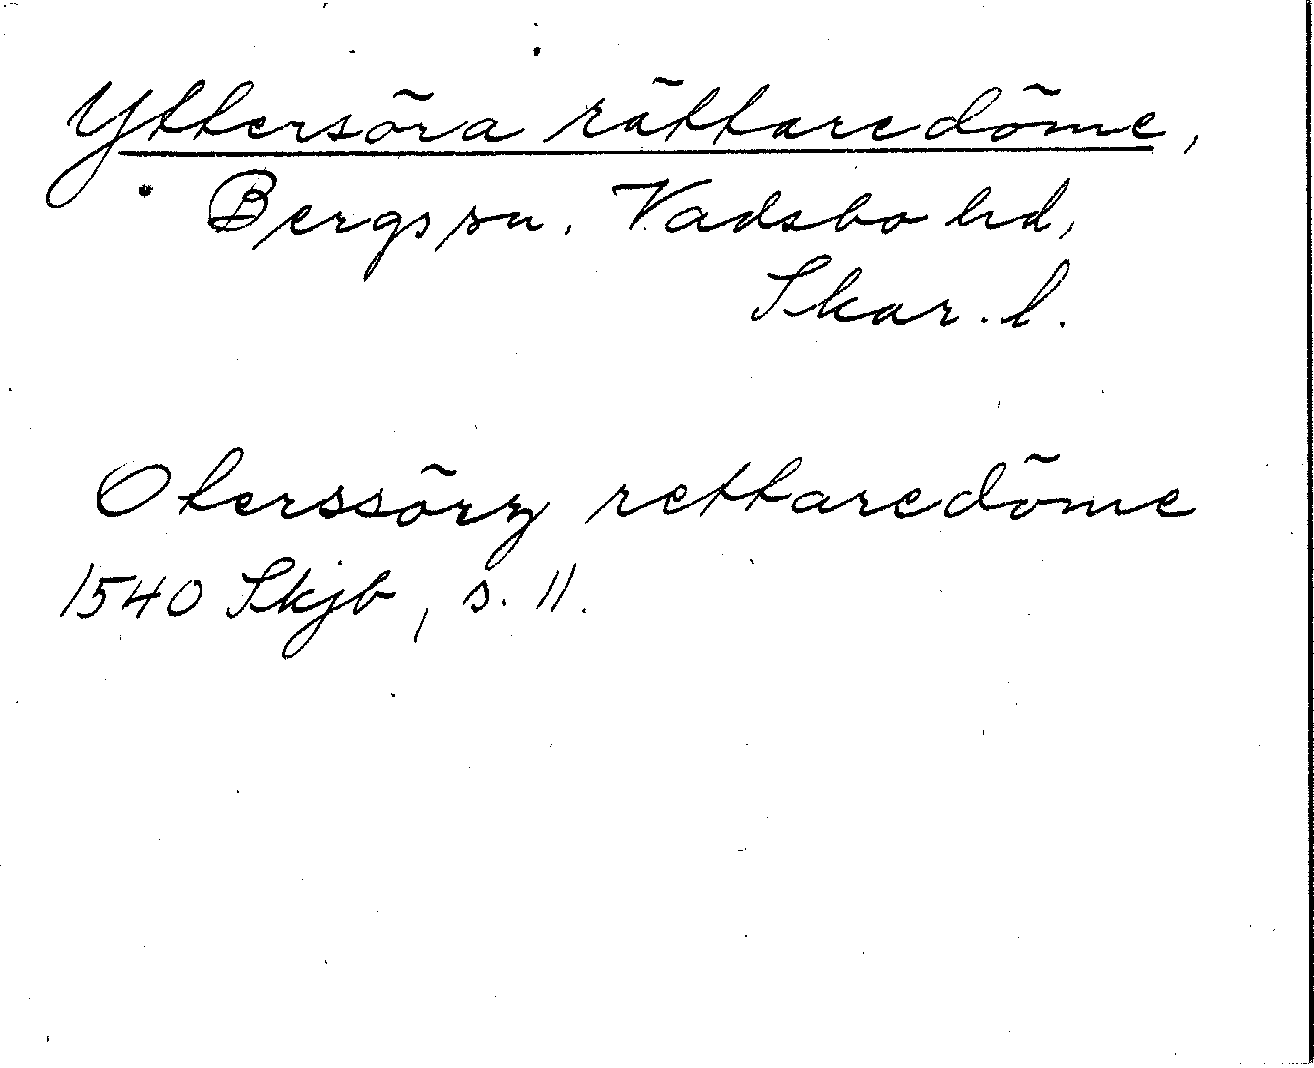 Yttersöra rättaredöme,
Bergs sn. Vadsbo hd,
Skar. l.
Oterssörz rettaredöme
1540 Skjb, s. 11.